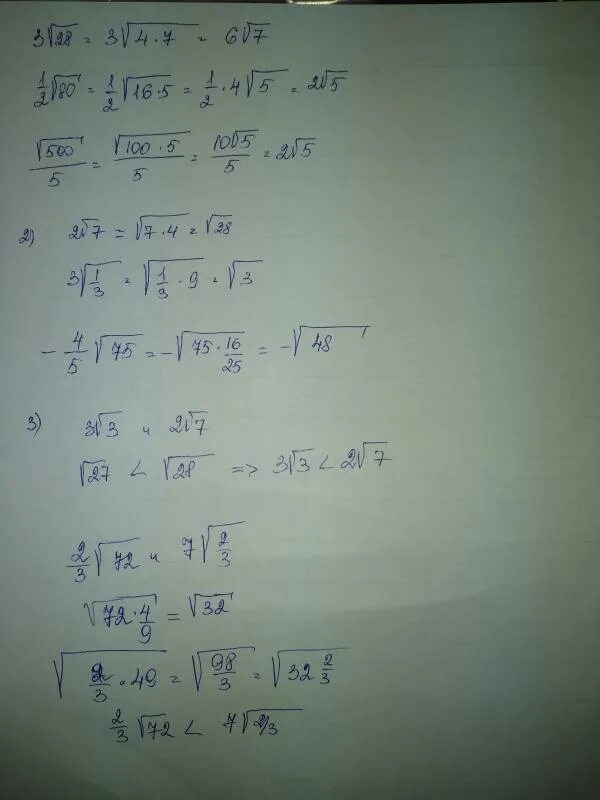 3√28 = 3√(4·7) = 6√7
1/2√80 = 1/2√(16·5) = 1/2·4√5 = 2√5
√500/5 = √(100·5)/5 = 10√5/5 = 2√5
2) 2√7 = √(7·4) = √28
3√(1/3) = √(1/3·9) = √3
-4/5√75 = -√(75·16/25) = -√48
3) 3√3 и 2√7
√27 < √28 => 3√3 < 2√7
2/3√72 и 7√(2/3)
√(72·4/9) = √32
√(2/3·49) = √(98/3) = √(32 2/3)
2/3√72 < 7√(2/3)